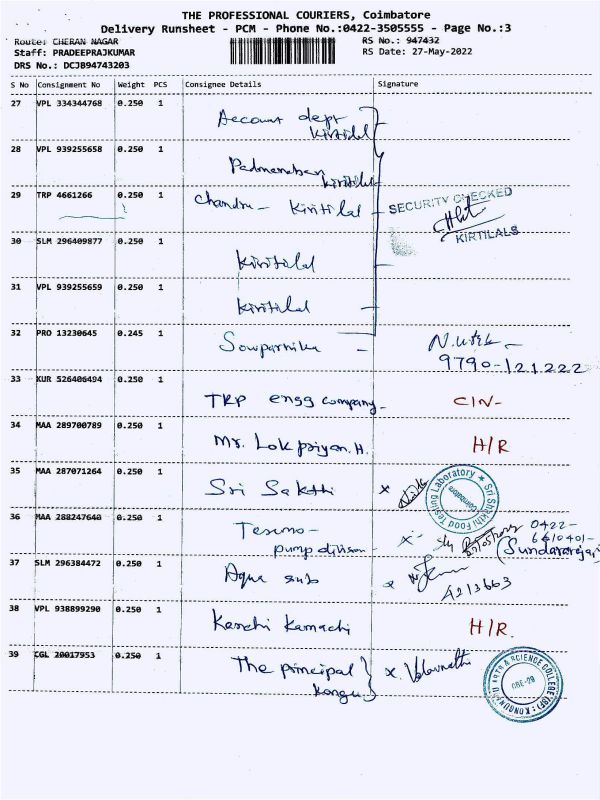 THE PROFESSIONAL COURIERS, Coimbatore
Delivery Runsheet - PCM - Phone No.:0422-3505555 - Page No.:3
Route: CHERAN NAGAR
RS No.: 947432
Staff: PRADEEPRAJKUMAR
RS Date: 27-May-2022
DRS No.: DCJB94743203
S No Consignment No Weight PCS Consignee Details Signature
27 VPL 334344768 0.250 1
Account dept
Kirtilal
28 VPL 939255658 0.250 1
Padmanaban
Kirtilal
29 TRP 4661266 0.250 1 Chandru - Kirtilal -
SECURITY CHECKED
KIRTILALS
30 SLM 296409877 0.250 1
Kirtilal
31 VPL 939255659 0.250 1
Kirtilal -
32 PRO 13230645 0.245 1
Sowparnika -
9790-121222
33 KUR 526406494 0.250 1
TRP engg company - CIN-
34 MAA 289700789 0.250 1
Mr. Lokpriyan.H. H/R
35 MAA 287071264 0.250 1
Sri Sakthi x
Sri Shakthi Food Testing Laboratory
Coimbatore
36 MAA 288247640 0.250 1
Texmo-
pump division - x
0422-
6610401-
(Sundararajan)
37 SLM 296384472 0.250 1
Aqua sub x
4213663
38 VPL 938899290 0.250 1
Kanchi Kamachi H/R.
39 CGL 20017953 0.250 1
The principal x.
Kongu
CBE-29